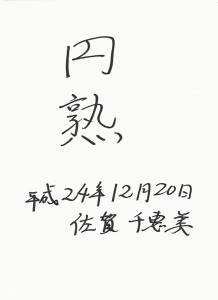 円
熟
平成24年12月20日
佐賀 千恵美